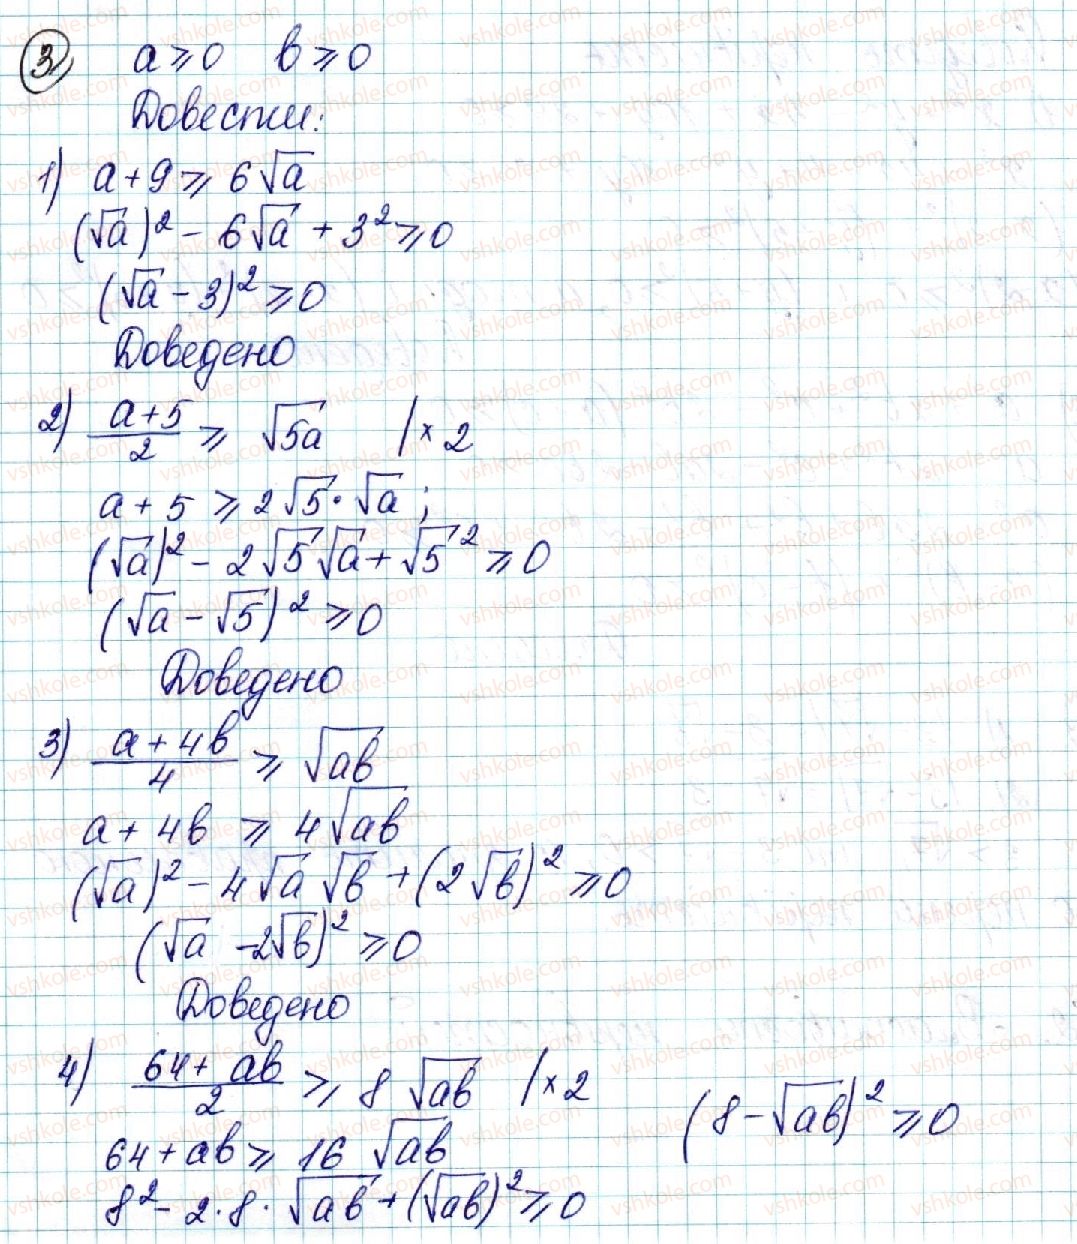 3) a ≥ 0 b ≥ 0
Довести:
1) a + 9 ≥ 6√a
(√a)² - 6√a + 3² ≥ 0
(√a - 3)² ≥ 0
Доведено
2) (a+5)/2 ≥ √5a | × 2
a + 5 ≥ 2√5 · √a ;
(√a)² - 2√5√a + √5² ≥ 0
(√a - √5)² ≥ 0
Доведено
3) (a + 4b)/4 ≥ √ab
a + 4b ≥ 4√ab
(√a)² - 4√a √b + (2√b)² ≥ 0
(√a - 2√b)² ≥ 0
Доведено
4) (64 + ab)/2 ≥ 8√ab | × 2
64 + ab ≥ 16√ab
8² - 2 · 8 · √ab + (√ab)² ≥ 0
(8 - √ab)² ≥ 0
vshkole.com